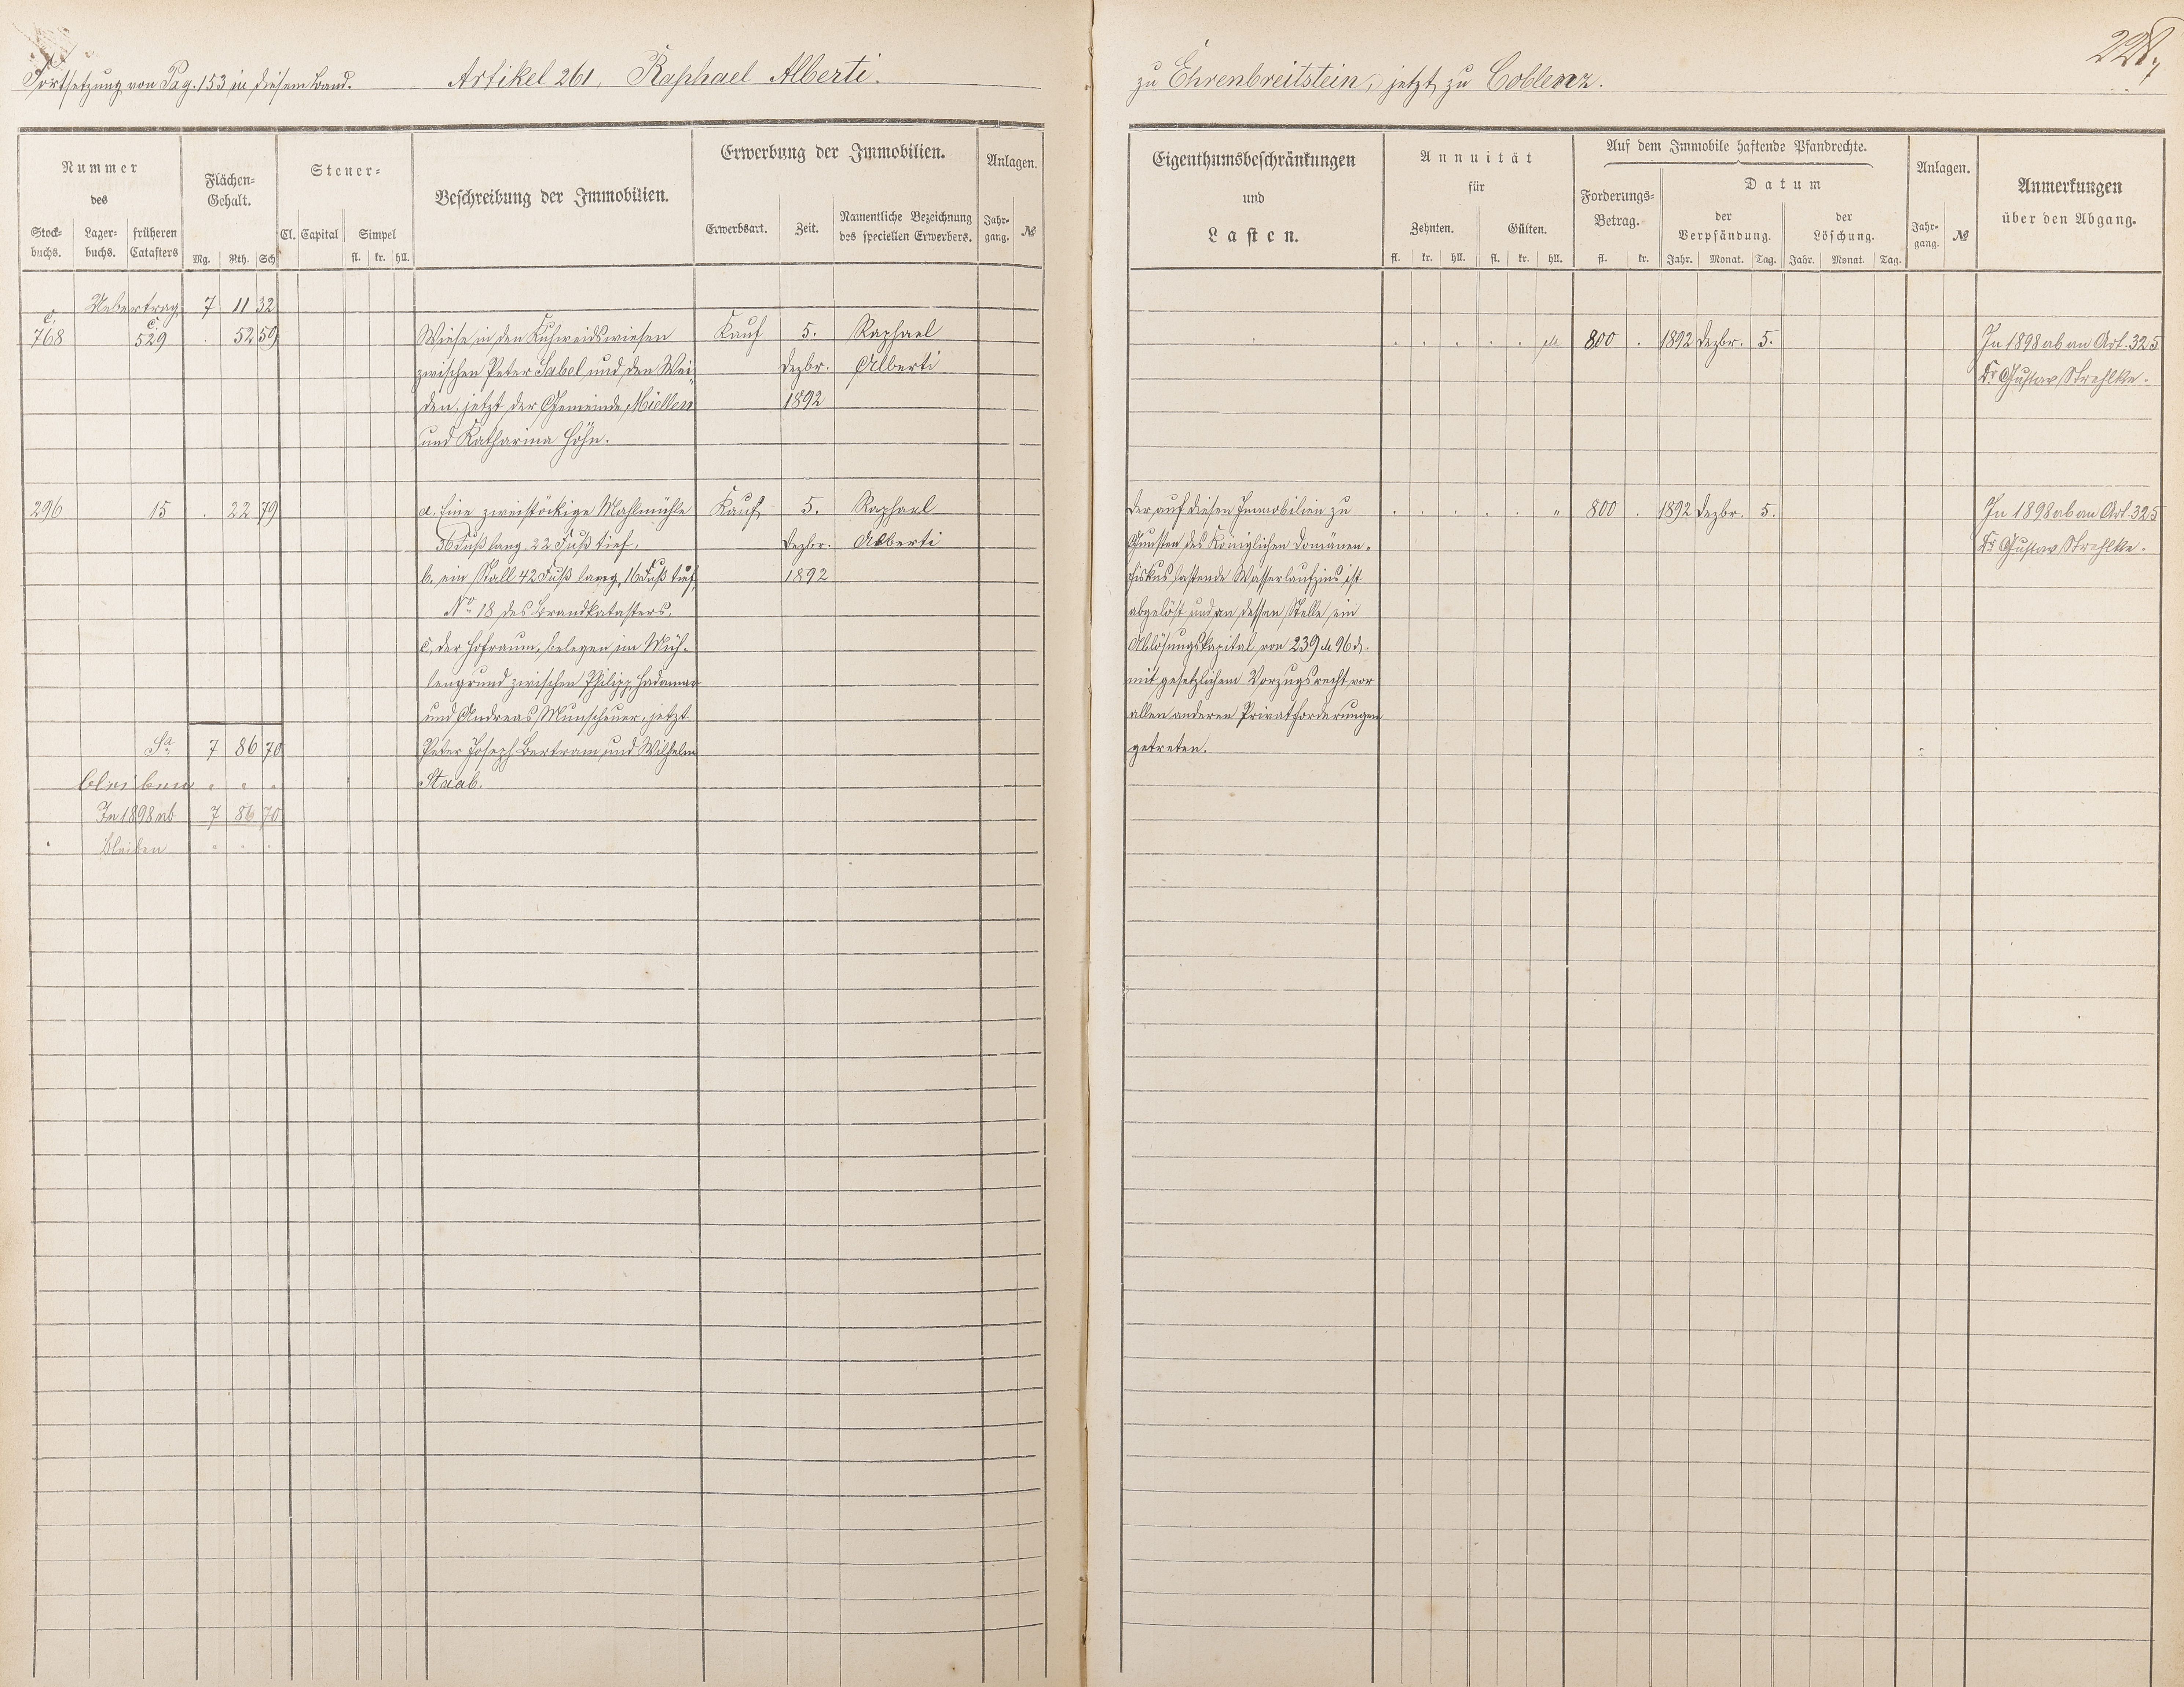 Fortsetzung von Pag. 153 in diesem Band. Artikel 261, Raphael Alberti.
zu Ehrenbreitstein, jetzt zu Coblenz.
Nummer
des
Stock-
buchs.
Lager-
buchs.
früheren
Catasters
Flächen-
Gehalt.
Mg. Rth. Sch
Steuer-
Cl. Capital Simpel
fl. kr. hll.
Beschreibung der Immobilien.
Erwerbung der Immobilien.
Erwerbsart. Zeit. Namentliche Bezeichnung
des speciellen Erwerbers.
Anlagen.
Jahr-
gang. №
Eigenthumsbeschränkungen
und
Lasten.
Annuität
für
Zehnten. Gülten.
fl. kr. hll. fl. kr. hll.
Auf dem Immobile haftende Pfandrechte.
Forderungs-
Betrag.
fl. kr.
Datum
der
Verpfändung.
der
Löschung.
Jahr. Monat. Tag. Jahr. Monat. Tag.
Anlagen.
Jahr-
gang. №
Anmerkungen
über den Abgang.
Uebertrag 7 11 32
c. c.
768 529 . 52 59 Wiese in den Kuhweidswiesen Kauf 5. Raphael
zwischen Peter Sabel und den Wei- Dezbr. Alberti
den, jetzt der Gemeinde Miellen 1892
und Katharina Höhn.
800 . 1892 Dezbr. 5. In 1898 ab an Art. 325
Dr Gustav Strehlke.
296 15 . 22 79 a. Eine zweistöckige Mahlmühle Kauf 5. Raphael
36 Fuß lang 22 Fuß tief, Dezbr. Alberti
b. ein Stall 42 Fuß lang, 16 Fuß tief, 1892
No 18 des Brandkatasters,
c. der Hofraum, belegen im Müh-
lengrund zwischen Philipp Hadamar
und Andreas Munscheuer, jetzt
Sa 7 86 70 Peter Joseph Bertram und Wilhelm
bleiben " " " Staab.
In 1898 ab 7 86 70
Bleiben " " "
Der auf diesen Immobilien zu 800 . 1892 Dezbr. 5. In 1898 ab an Art. 325
Gunsten des Königlichen Domänen- Dr Gustav Strehlke.
fiskus lastende Wasserlaufzins ist
abgelöst und an dessen Stelle ein
Ablösungskapital von 239 M 96 d.
mit gesetzlichem Vorzugsrecht vor
allen anderen Privatforderungen
getreten.